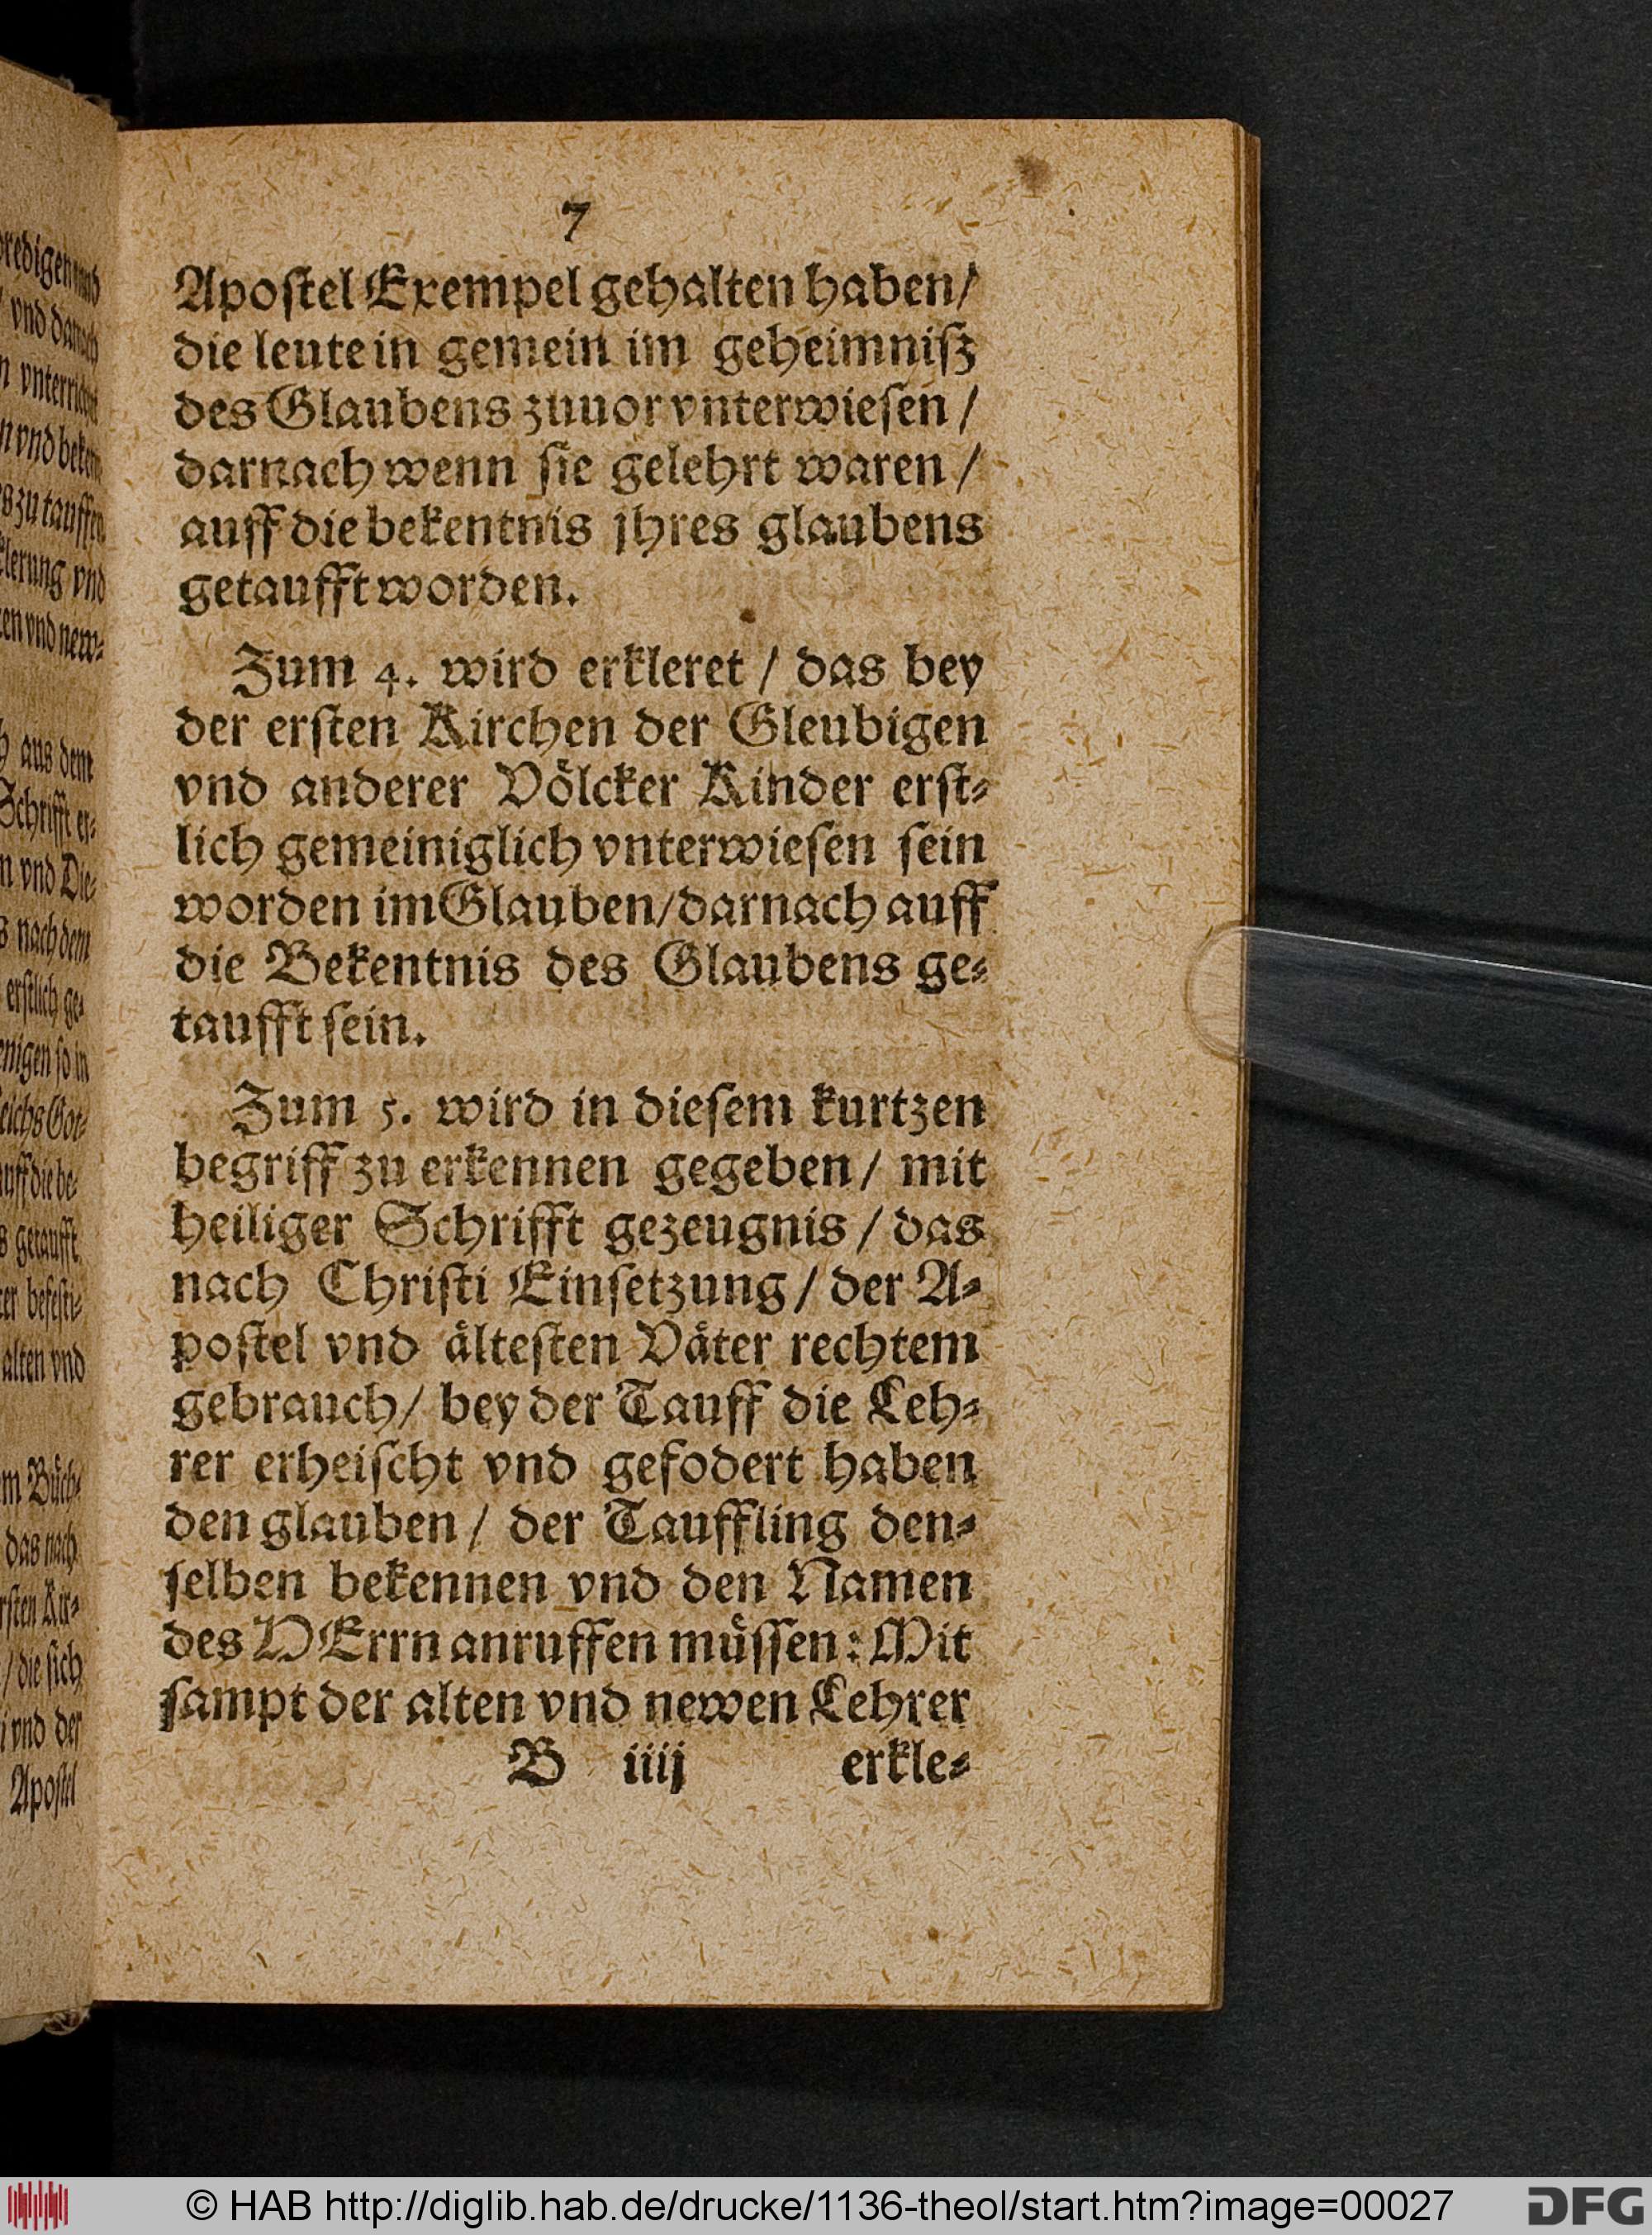 7
Apoſtel Exempel gehalten haben/
die leute in gemein im geheimniſz
des Glaubens zuuor vnterwieſen /
darnach wenn ſie gelehrt waren /
auff die bekentnis jhres glaubens
getaufft worden.
Zum 4. wird erkleret / das bey
der erſten Kirchen der Gleubigen
vnd anderer Voͤlcker Kinder erſt⸗
lich gemeiniglich vnterwieſen ſein
worden im Glauben/darnach auff
die Bekentnis des Glaubens ge⸗
taufft ſein.
Zum 5. wird in dieſem kurtzen
begriff zu erkennen gegeben / mit
heiliger Schrifft gezeugnis / das
nach Chriſti Einſetzung / der A⸗
poſtel vnd aͤlteſten Vaͤter rechtem
gebrauch / bey der Tauff die Leh⸗
rer erheiſcht vnd gefodert haben
den glauben / der Tauffling den⸗
ſelben bekennen vnd den Namen
des HErrn anruffen muͤſſen: Mit
ſampt der alten vnd newen Lehrer
B iiij erkle⸗
vnd
vnd new⸗
aus dem
vnd Die⸗
nach dem
erſtlich ge⸗
ſo in
getaufft
alten vnd
das nach
/ die ſich
vnd der
Apoſtel
© HAB http://diglib.hab.de/drucke/1136-theol/start.htm?image=00027
DFG